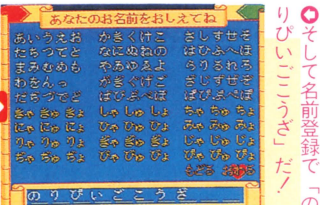 ❶そして名前登録で「の
りぴいごこうざ」だ！
あなたのお名前をおしえてね
あいうえお かきくけこ さしすせそ
たちつてと なにぬねの はひふへほ
まみむめも やゆよ らりるれろ
わをんっ がぎぐげご ざじずぜぞ
だぢづでど ばびぶべぼ ぱぴぷぺぽ
きゃ きゅ きょ しゃ しゅ しょ ちゃ ちゅ ちょ
にゃ にゅ にょ ひゃ ひゅ ひょ みゃ みゅ みょ
りゃ りゅ りょ ぎゃ ぎゅ ぎょ じゃ じゅ じょ
ぢゃ ぢゅ ぢょ びゃ びゅ びょ ぴゃ ぴゅ ぴょ
もどる おわり
のりぴいごこうざ